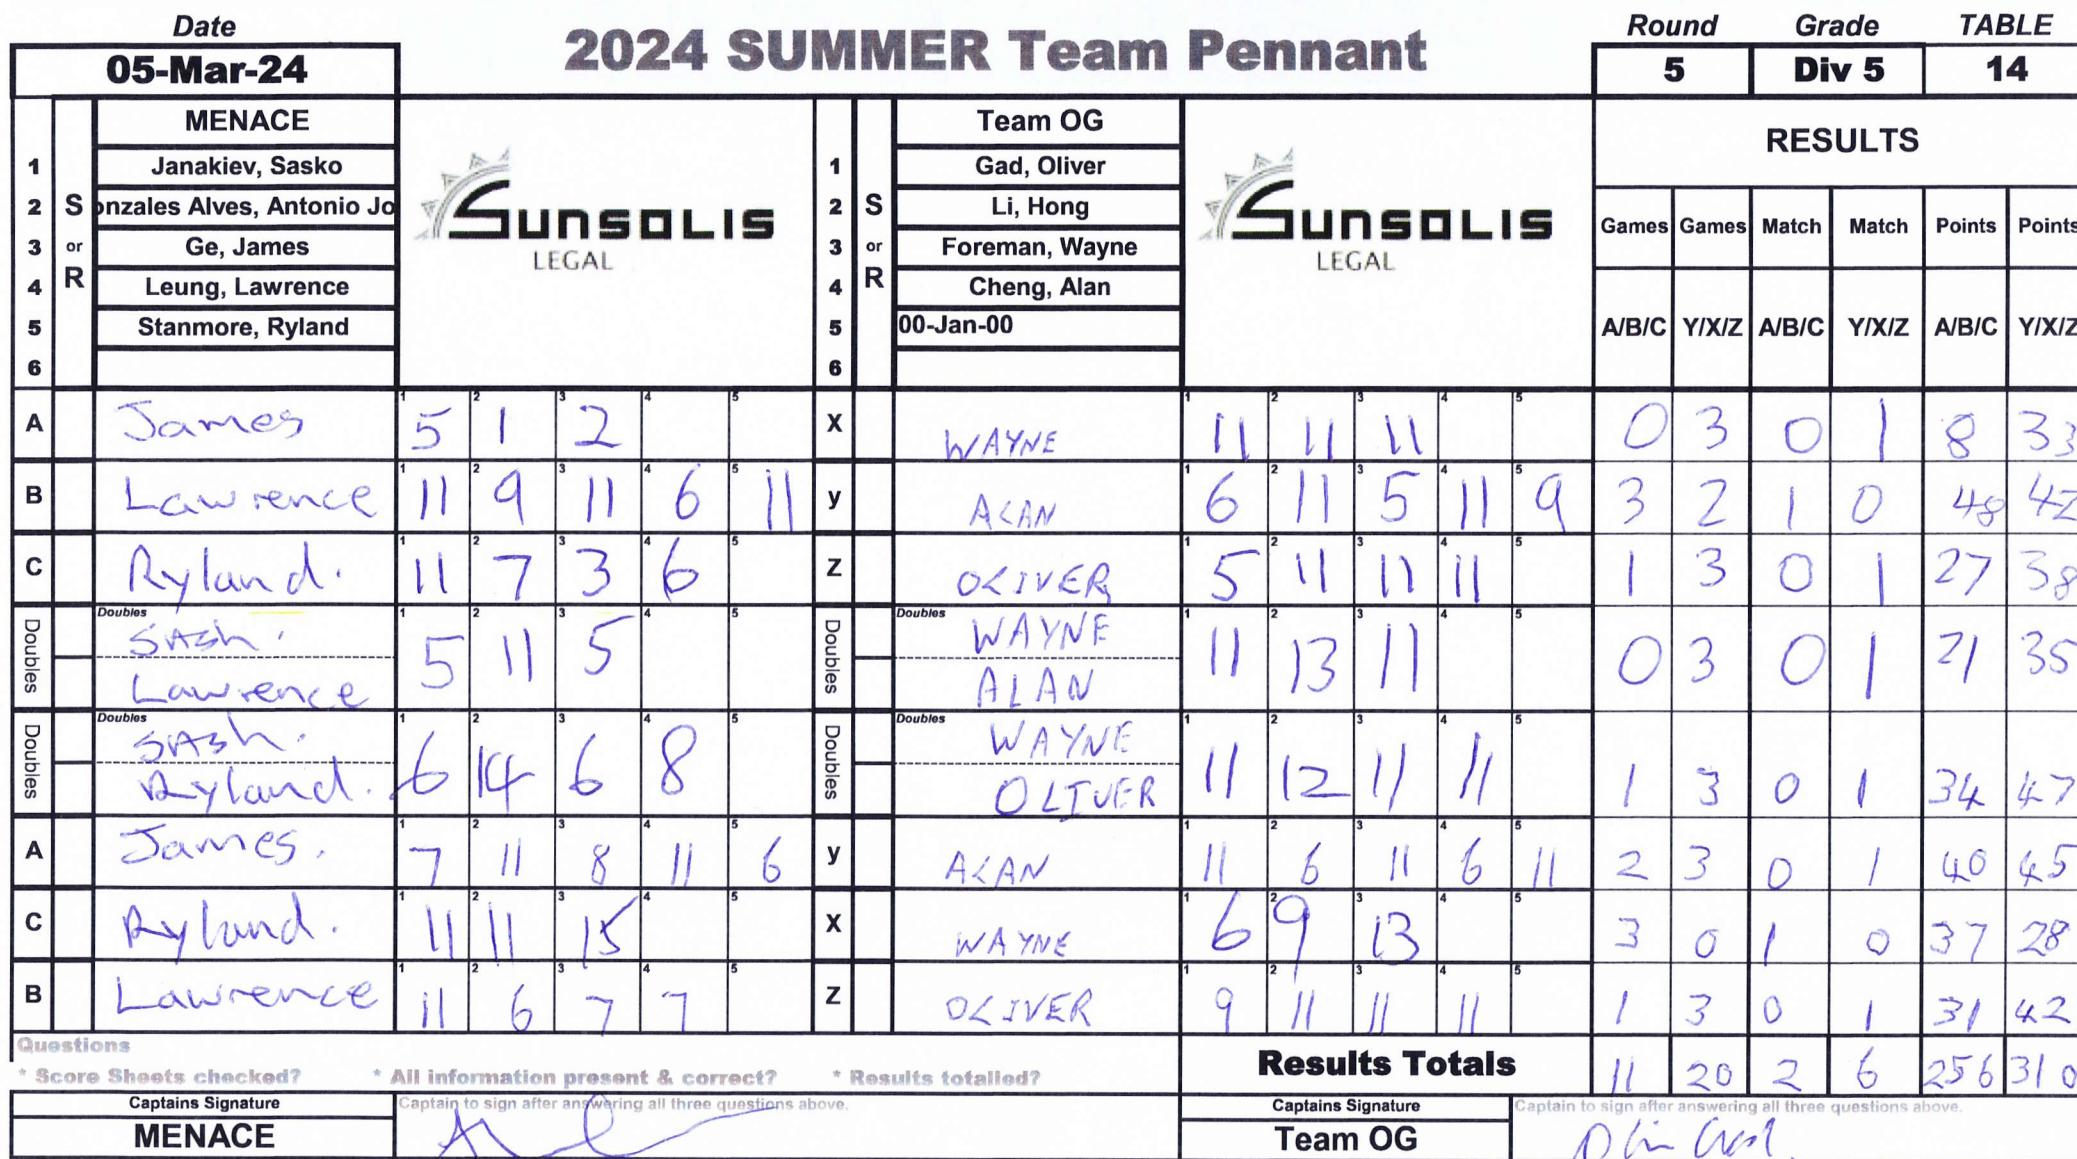 Date
05-Mar-24
2024 SUMMER Team Pennant
Round Grade TABLE
5 Div 5 14
MENACE
1 Janakiev, Sasko
2 onzales Alves, Antonio Jo
3 Ge, James
4 Leung, Lawrence
5 Stanmore, Ryland
6
S or R
SUNSOLIS
LEGAL
Team OG
1 Gad, Oliver
2 Li, Hong
3 Foreman, Wayne
4 Cheng, Alan
5 00-Jan-00
6
S or R
SUNSOLIS
LEGAL
RESULTS
Games Games Match Match Points Points
A/B/C Y/X/Z A/B/C Y/X/Z A/B/C Y/X/Z
1 2 3 4 5 1 2 3 4 5
A James 5 1 2 X WAYNE 11 11 11 0 3 0 1 8 33
1 2 3 4 5 1 2 3 4 5
B Lawrence 11 9 11 6 11 y ALAN 6 11 5 11 9 3 2 1 0 48 42
1 2 3 4 5 1 2 3 4 5
C Ryland. 11 7 3 6 Z OLIVER 5 11 11 11 1 3 0 1 27 38
Doubles 1 2 3 4 5 Doubles 1 2 3 4 5
Doubles SASh. Lawrence 5 11 5 Doubles WAYNE ALAN 11 13 11 0 3 0 1 21 35
Doubles 1 2 3 4 5 Doubles 1 2 3 4 5
Doubles SASh. Ryland. 6 14 6 8 Doubles WAYNE OLIVER 11 12 11 11 1 3 0 1 34 47
1 2 3 4 5 1 2 3 4 5
A James. 7 11 8 11 6 y ALAN 11 6 11 6 11 2 3 0 1 40 45
1 2 3 4 5 1 2 3 4 5
C Ryland. 11 11 15 X WAYNE 6 9 13 3 0 1 0 37 28
1 2 3 4 5 1 2 3 4 5
B Lawrence 11 6 7 7 Z OLIVER 9 11 11 11 1 3 0 1 31 42
Questions
* Score Sheets checked? * All information present & correct? * Results totalled?
Results Totals 11 20 2 6 256 310
Captains Signature Captain to sign after answering all three questions above.
MENACE
Captains Signature Captain to sign after answering all three questions above.
Team OG